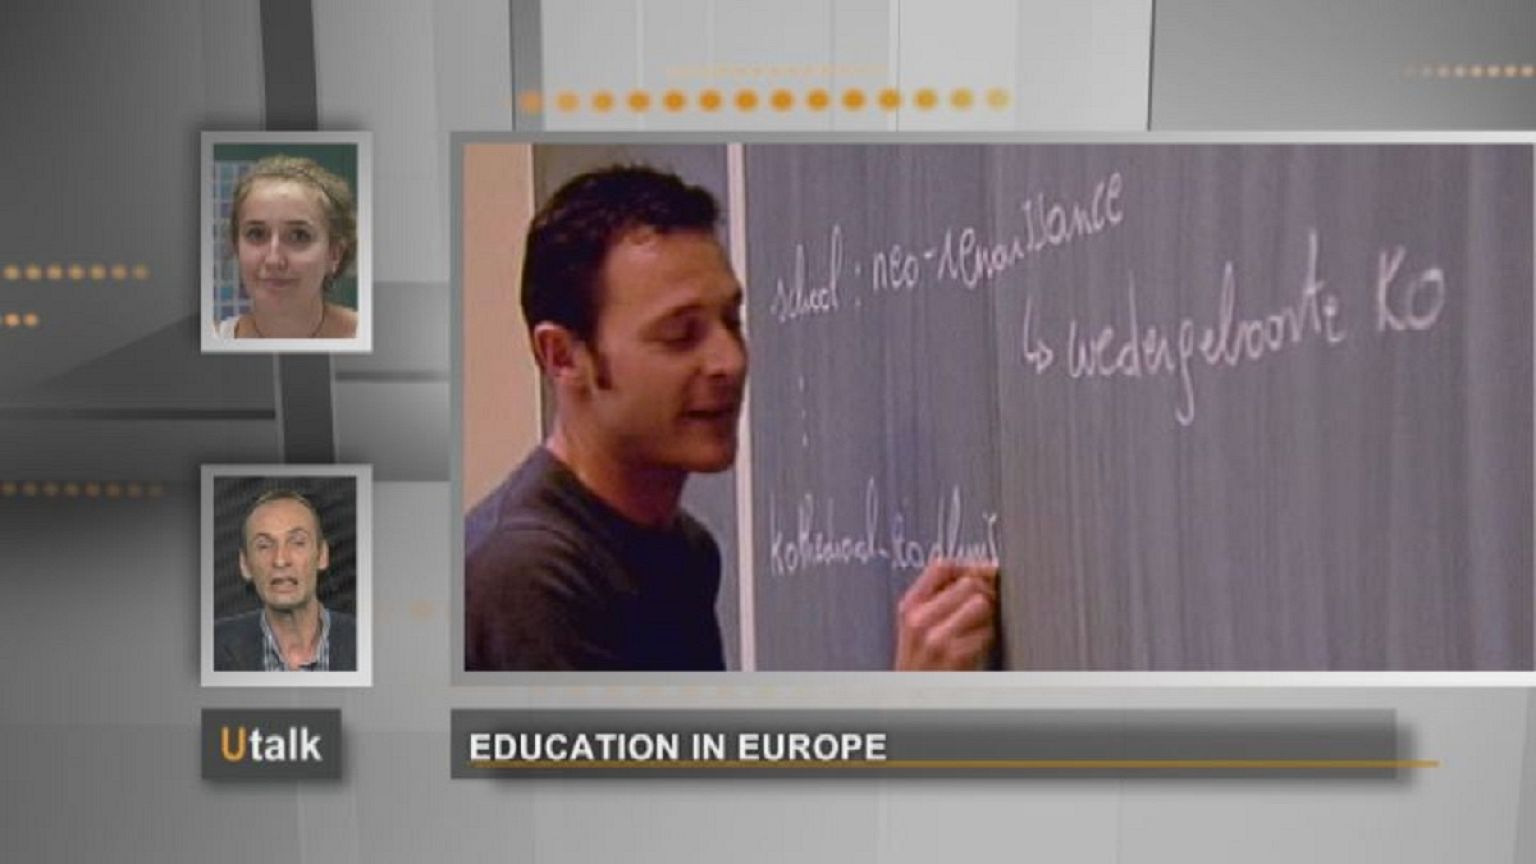 school : neo-renaissance
↳ wedergeboorte KO
Kathedraal-
Utalk
EDUCATION IN EUROPE